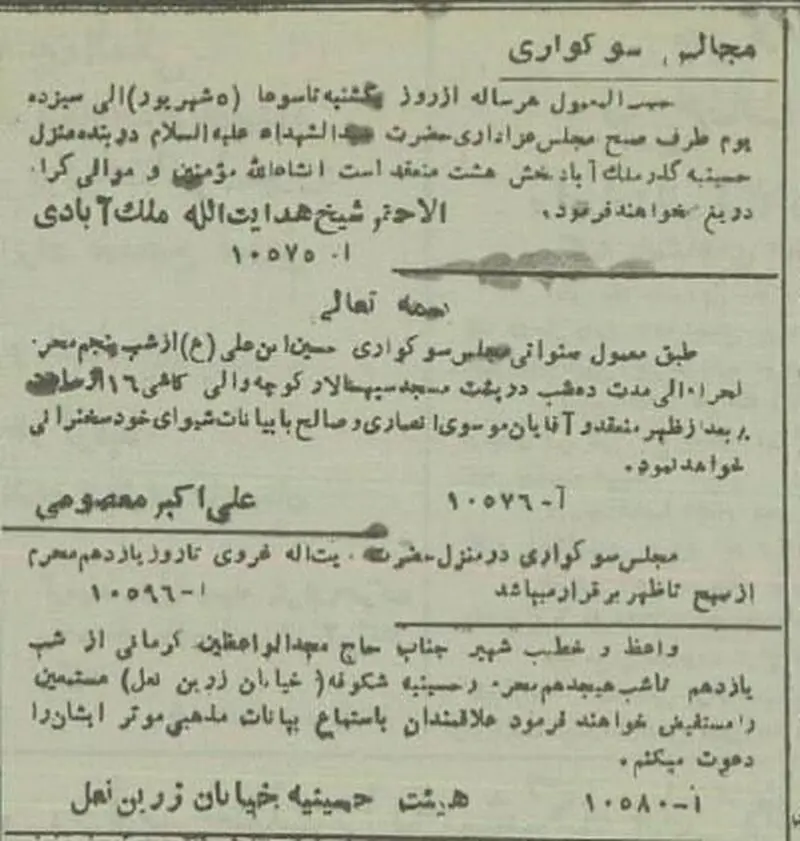 مجالس سوکواری
حسب المعمول هرساله ازروز یکشنبه تاسوعا (۵ شهریور) الی سیزده
یوم طرف صبح مجلس عزاداری حضرت سیدالشهداء علیه السلام در بنده منزل
حسینیه گذر ملک آباد بخش هشت منعقد است انشاءالله مؤمنین و موالی کرا.
دریغ نخواهند فرمود.
الاحقر شیخ هدایت الله ملک آبادی
ا- ۱۰۵۷۵
بسمه تعالی
طبق معمول سنواتی مجلس سوکواری حسین ابن علی (ع) از شب پنجم محرم
لحرام الی مدت ده شب در پشت مسجد سپهسالار کوچه والی کاشی ۱۶ از ساعت
بعد از ظهر منعقد و آقایان موسوی انصاری و صالح با بیانات شیوای خود سخنرانی
خواهد نمود.
آ- ۱۰۵۷۶
علی اکبر معصومی
مجلس سوکواری در منزل حضرت آیت اله غروی تا روز یازدهم محرم
از صبح تا ظهر برقرار میباشد
ا- ۱۰۵۹۶
واعظ و خطیب شهیر جناب حاج مجدالواعظین کرمانی از شب
یازدهم تا شب هیجدهم محرم در حسینیه شکوفه ( خیابان زرین نعل) مستمعین
را مستفیض خواهند فرمود علاقمندان باستماع بیانات مذهبی موثر ایشان را
دعوت میکنم.
أ- ۱۰۵۸۰
هیئت حسینیه خیابان زرین نعل